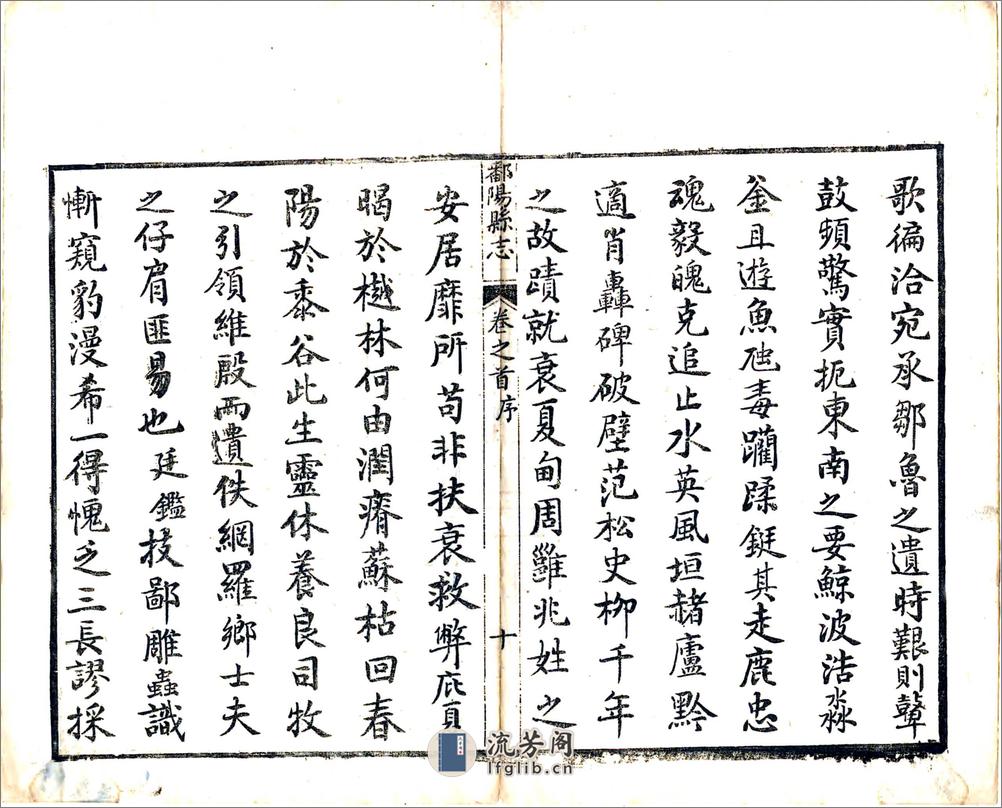 歌徧洽宛承鄒魯之遺時艱則鼙
鼓頻驚實扼東南之要鯨波浩淼
釜且遊魚虺毒躪蹂鋌其走鹿忠
魂毅魄克追止水英風垣赭廬黔
適肖轟碑破壁范松史栁千年
之故蹟就衰夏甸周雝兆姓之
鄱陽縣志
卷之首 序
十
安居靡所苟非扶衰救弊庇
暍於樾林何由潤瘠蘇枯回春
陽於黍谷此生靈休養良司牧
之引領維殷而遺佚網羅鄉士夫
之仔肩匪易也廷鑑技鄙雕蟲識
慚窺豹漫希一得愧乏三長謬採
流芳阁
lfglib.cn